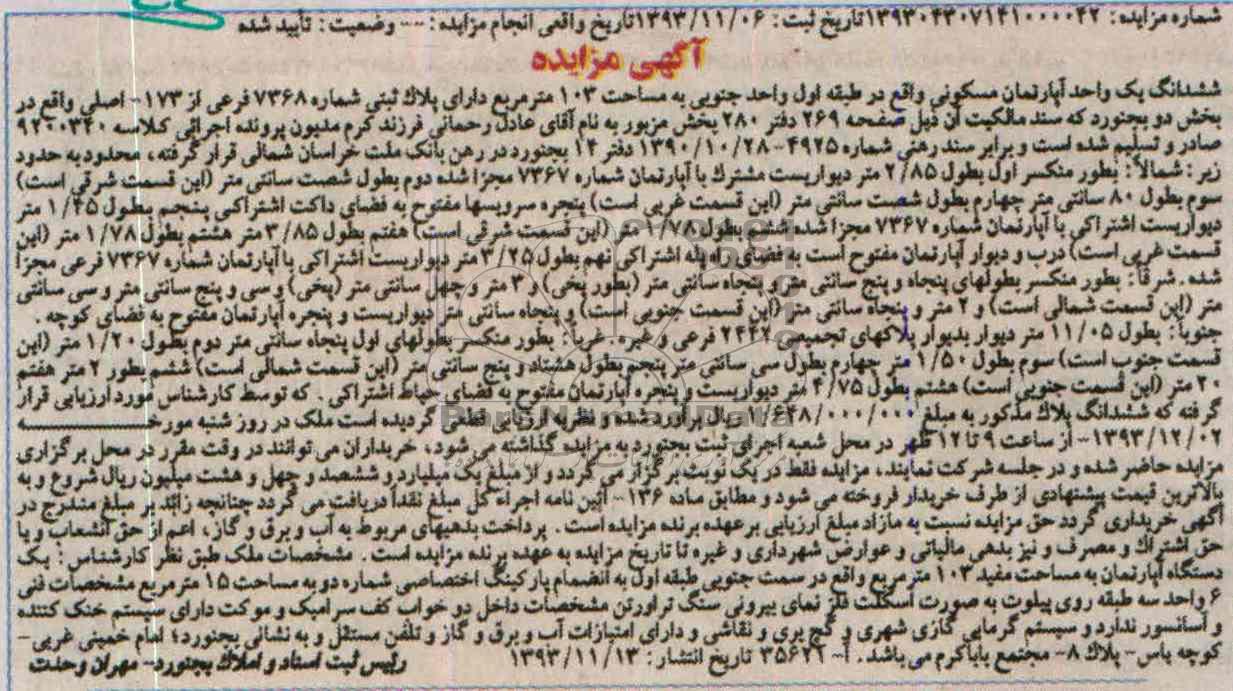 شماره مزایده: ۱۳۹۳۰۴۳۰۷۱۴۱۰۰۰۰۴۲ تاریخ ثبت: ۱۳۹۳/۱۱/۰۶ تاریخ واقعی انجام مزایده: -- وضعیت: تأیید شده
آگهی مزایده
ششدانگ یک واحد آپارتمان مسکونی واقع در طبقه اول واحد جنوبی به مساحت ۱۰۳ مترمربع دارای پلاك ثبتی شماره ۷۳۶۸ فرعی از ۱۷۳- اصلی واقع در
بخش دو بجنورد که سند مالکیت آن ذیل صفحه ۲۶۹ دفتر ۲۸۰ بخش مزبور به نام آقای عادل رحمانی فرزند کرم مدیون پرونده اجرائی کلاسه ۹۲۰۰۳۴۰
صادر و تسلیم شده است و برابر سند رهنی شماره ۴۹۲۵-۱۳۹۰/۱۰/۲۸ دفتر ۱۴ بجنورد در رهن بانک ملت خراسان شمالی قرار گرفته، محدود به حدود
زیر: شمالاً: بطور منکسر اول بطول ۲/۸۵ متر دیواریست مشترك با آپارتمان شماره ۷۳۶۷ مجزا شده دوم بطول شصت سانتی متر (این قسمت شرقی است)
سوم بطول ۸۰ سانتی متر چهارم بطول شصت سانتی متر (این قسمت غربی است) پنجره سرویسها مفتوح به فضای داکت اشتراکی پنجم بطول ۱/۴۵ متر
دیواریست اشتراکی با آپارتمان شماره ۷۳۶۷ مجزا شده ششم بطول ۱/۷۸ متر (این قسمت شرقی است) هفتم بطول ۳/۸۵ متر هشتم بطول ۱/۷۸ متر (این
قسمت غربی است) درب و دیوار آپارتمان مفتوح است به فضای راه پله اشتراکی نهم بطول ۳/۲۵ متر دیواریست اشتراکی با آپارتمان شماره ۷۳۶۷ فرعی مجزا
شده. شرقاً: بطور منکسر بطولهای پنجاه و پنج سانتی متر و پنجاه سانتی متر (بطور پخی) و ۳ متر و چهل سانتی متر (پخی) و سی و پنج سانتی متر و سی سانتی
متر (این قسمت شمالی است) و ۲ متر و پنجاه سانتی متر (این قسمت جنوبی است) و پنجاه سانتی متر دیواریست و پنجره آپارتمان مفتوح به فضای کوچه.
جنوباً: بطول ۱۱/۰۵ متر دیوار بدیوار پلاکهای تجمیعی ۲۴۴۲ فرعی و غیره. غرباً: بطور منکسر بطولهای اول پنجاه سانتی متر دوم بطول ۱/۲۰ متر (این
قسمت جنوب است) سوم بطول ۱/۵۰ متر چهارم بطول سی سانتی متر پنجم بطول هشتاد و پنج سانتی متر (این قسمت شمالی است) ششم بطور ۲ متر هفتم
۲۰ متر (این قسمت جنوبی است) هشتم بطول ۴/۷۵ متر دیواریست و پنجره آپارتمان مفتوح به فضای حیاط اشتراکی. که توسط کارشناس مورد ارزیابی قرار
گرفته که ششدانگ پلاك مذکور به مبلغ ۱/۶۴۸/۰۰۰/۰۰۰ ریال برآورد شده و نظریه ارزیابی قطعی گردیده است ملک در روز شنبه مورخــــــه
۱۳۹۳/۱۲/۰۲- از ساعت ۹ تا ۱۲ ظهر در محل شعبه اجرای ثبت بجنورد به مزایده گذاشته می شود، خریداران می توانند در وقت مقرر در محل برگزاری
مزایده حاضر شده و در جلسه شرکت نمایند، مزایده فقط در یک نوبت برگزار می گردد و از مبلغ یک میلیارد و ششصد و چهل و هشت میلیون ریال شروع و به
بالاترین قیمت پیشنهادی از طرف خریدار فروخته می شود و مطابق ماده ۱۳۶- آئین نامه اجراء کل مبلغ نقداً دریافت می گردد چنانچه زائد بر مبلغ مندرج در
آگهی خریداری گردد حق مزایده نسبت به مازاد مبلغ ارزیابی بر عهده برنده مزایده است. پرداخت بدهیهای مربوط به آب و برق و گاز، اعم از حق انشعاب و یا
حق اشتراك و مصرف و نیز بدهی مالیاتی و عوارض شهرداری و غیره تا تاریخ مزایده به عهده برنده مزایده است. مشخصات ملک طبق نظر کارشناس: یک
دستگاه آپارتمان به مساحت مفید ۱۰۳ مترمربع واقع در سمت جنوبی طبقه اول به انضمام پارکینگ اختصاصی شماره دو به مساحت ۱۵ مترمربع مشخصات فنی
۶ واحد سه طبقه روی پیلوت به صورت اسکلت فلز نمای بیرونی سنگ تراورتن مشخصات داخل دو خواب کف سرامیک و موکت دارای سیستم خنک کننده
و آسانسور ندارد و سیستم گرمایی گازی شهری و گچ بری و نقاشی و دارای امتیازات آب و برق و گاز و تلفن مستقل و به نشانی بجنورد؛ امام خمینی غربی-
کوچه یاس- پلاك ۸- مجتمع باباکرم می باشد. آ-۳۵۶۲۱ تاریخ انتشار: ۱۳۹۳/۱۱/۱۳
رئیس ثبت اسناد و املاك بجنورد- مهران وحدت
ParsNamadData